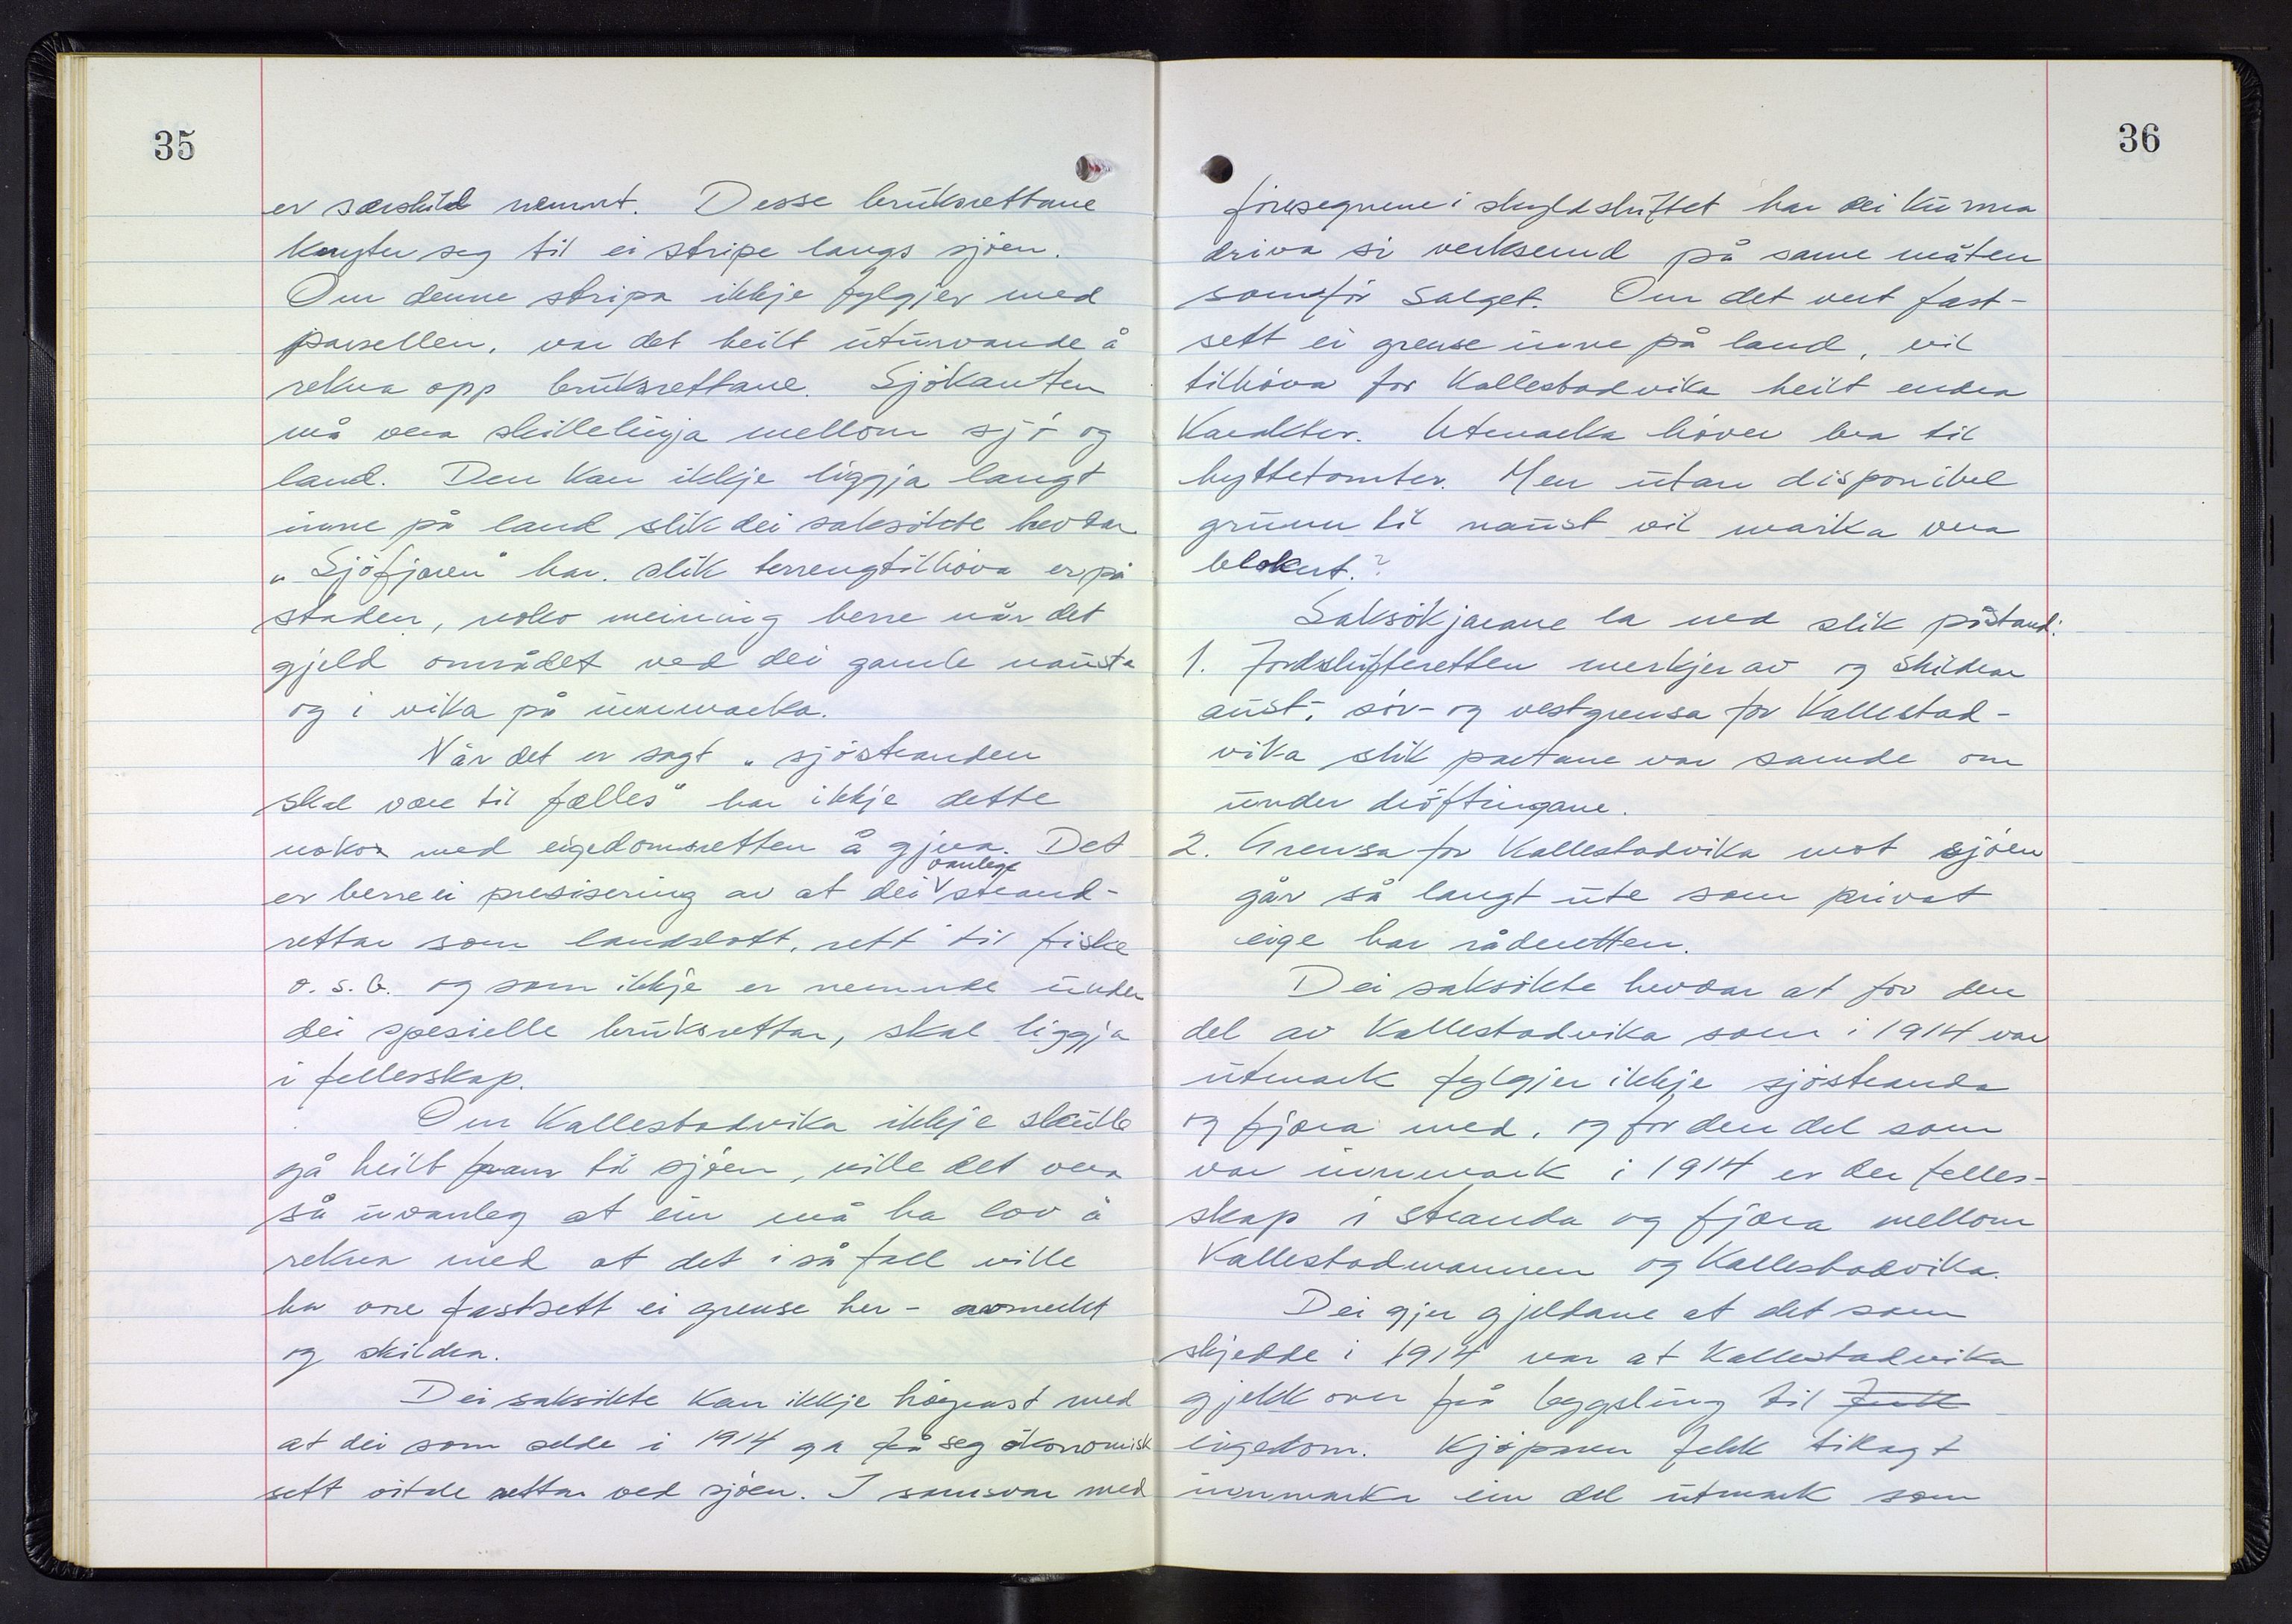 35
er særskild nemnt. Desse bruksrettane
knyter seg til ei stripe langs sjøen.
Om denne stripa ikkje fylgjer med
parsellen, var det heilt uturvande å
rekna opp bruksrettane. Sjøkanten
må vera skillelinja mellom sjø og
land. Den kan ikkje liggja langt
inne på land slik dei saksøkte hevdar
„Sjøfjæren" har, slik terrengtilhøva er på
staden, noko meining berre når det
gjeld området ved dei gamle nausta
og i vika på innmarka.
Når det er sagt „sjøstranden
skal være til fælles" har ikkje dette
noko med eigedomsretten å gjera. Det
er berre ei presisering av at dei vanlege strand-
rettar som landslott, rett til fiske
o.s.b. og som ikkje er nemnde under
dei spesielle bruksrettar, skal liggja
i fellesskap.
Om Kallestadvika ikkje skulle
gå heilt fram til sjøen, ville det vera
så uvanleg at ein må ha lov å
rekna med at det i så fall ville
ha vore fastsett ei grense her - avmerkt
og skildra.
Dei saksøkte kan ikkje høyrast med
at dei som selde i 1914 ga frå seg økonomisk
sett vitale rettar ved sjøen. I samsvar med
36
føresegnene i skyldskiftet har dei kunna
driva si verksemd på same måten
som før salget. Om det vert fast-
sett ei grense inne på land, vil
tilhøva for Kallestadvika heilt endra
karakter. Utmarka høver bra til
hyttetomter. Men utan disponibel
grunn til naust vil marka vera
blokert.?
Saksøkjarane la ned slik påstand:
1. Jordskifteretten merkjer av og skildrar
aust-, sør- og vestgrensa for Kallestad-
vika slik partane var samde om
under drøftingane.
2. Grensa for Kallestadvika mot sjøen
går så langt ute som privat
eige har råderetten.
Dei saksøkte hevdar at for den
del av Kallestadvika som i 1914 var
utmark fylgjer ikkje sjøstranda
og fjøra med, og for den del som
var innmark i 1914 er der felles-
skap i stranda og fjæra mellom
Kallestadmannen og Kallestadvika.
Dei gjer gjeldane at det som
skjedde i 1914 var at Kallestadvika
gjekk over frå bygsling til
eigedom. Kjøparen fekk tillagt
innmarka ein del utmark som